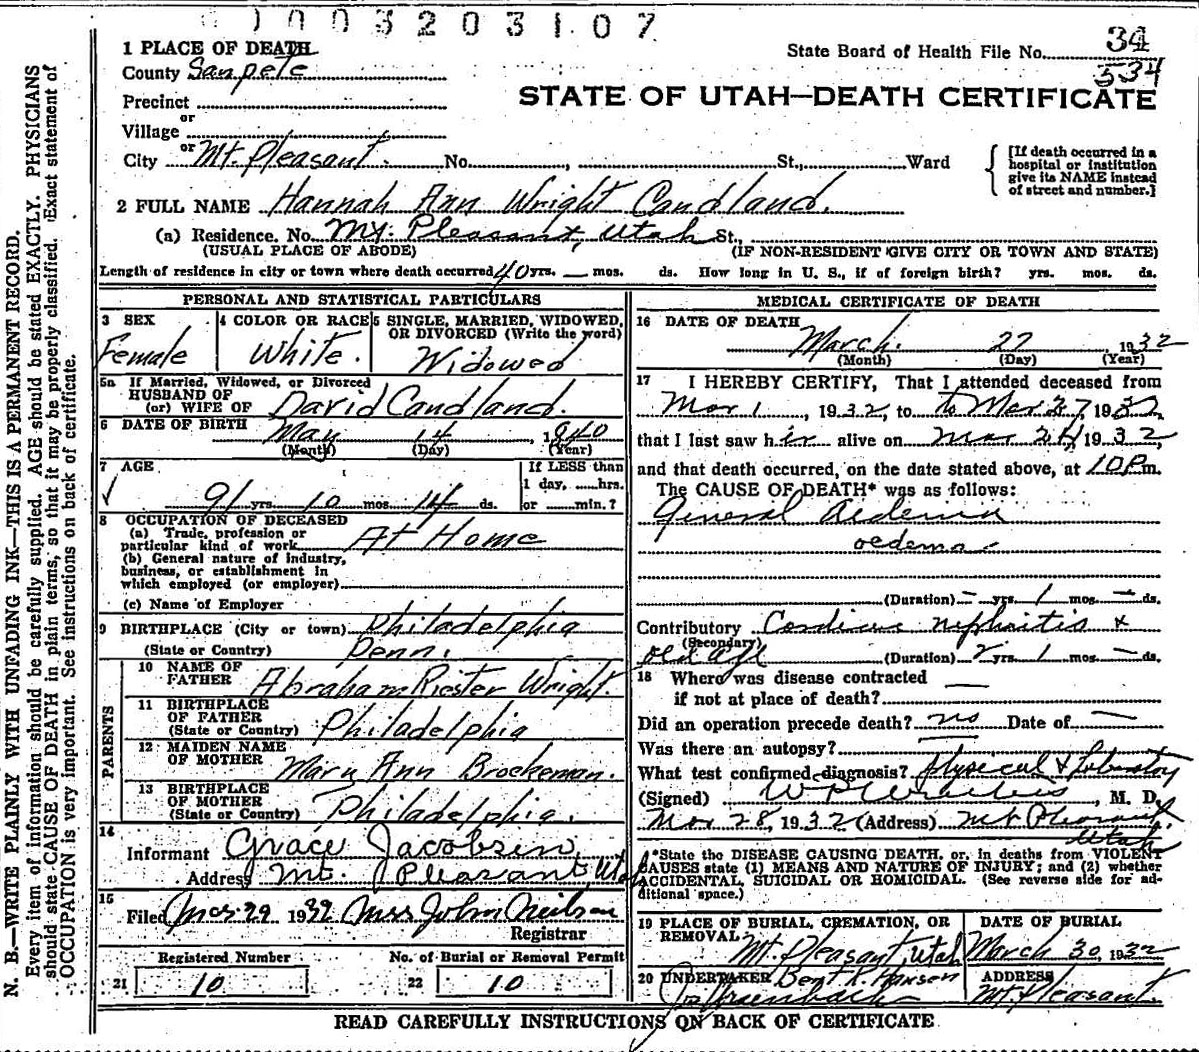 003203107
1 PLACE OF DEATH
State Board of Health File No. 34
County Sanpete
534
STATE OF UTAH—DEATH CERTIFICATE
Precinct
or
Village
or
City Mt. Pleasant. No. , St., Ward
[If death occurred in a
hospital or institution
give its NAME instead
of street and number.]
2 FULL NAME Hannah Ann Wright Candland.
(a) Residence. No. Mt. Pleasant, Utah St.,
(USUAL PLACE OF ABODE) (IF NON-RESIDENT GIVE CITY OR TOWN AND STATE)
Length of residence in city or town where death occurred 40 yrs. — mos. ds. How long in U. S., if of foreign birth? yrs. mos. ds.
N. B.—WRITE PLAINLY WITH UNFADING INK—THIS IS A PERMANENT RECORD.
Every item of information should be carefully supplied. AGE should be stated EXACTLY. PHYSICIANS
should state CAUSE OF DEATH in plain terms, so that it may be properly classified. Exact statement of
OCCUPATION is very important. See instructions on back of certificate.
PERSONAL AND STATISTICAL PARTICULARS
3 SEX
Female
4 COLOR OR RACE
White.
5 SINGLE, MARRIED, WIDOWED,
OR DIVORCED (Write the word)
Widowed
5a If Married, Widowed, or Divorced
HUSBAND OF
(or) WIFE OF David Candland.
6 DATE OF BIRTH May 14, 1840
(Month) (Day) (Year)
7 AGE
91 yrs. 10 mos. 14 ds.
If LESS than
1 day, ......hrs.
or ......min.?
8 OCCUPATION OF DECEASED
(a) Trade, profession or
particular kind of work At Home
(b) General nature of industry,
business, or establishment in
which employed (or employer)
(c) Name of Employer
9 BIRTHPLACE (City or town) Philadelphia
(State or Country) Penn.
PARENTS
10 NAME OF
FATHER Abraham Riester Wright.
11 BIRTHPLACE
OF FATHER
(State or Country) Philadelphia
12 MAIDEN NAME
OF MOTHER Mary Ann Brockeman.
13 BIRTHPLACE
OF MOTHER
(State or Country) Philadelphia.
14
Informant Grace Jacobsen,
Address Mt. Pleasant, Utah
15
Filed Mar 29 1932 Mrs John Neilson
Registrar
Registered Number
21 10
No. of Burial or Removal Permit
22 10
MEDICAL CERTIFICATE OF DEATH
16 DATE OF DEATH
March. 27 1932
(Month) (Day) (Year)
17 I HEREBY CERTIFY, That I attended deceased from
Mar 1, 1932, to to Mar 27, 1932,
that I last saw her alive on Mar 24 1932,
and that death occurred, on the date stated above, at 10 P m.
The CAUSE OF DEATH* was as follows:
General
oedema
(Duration) — yrs. 1 mos — ds.
Contributory nephritis &
(Secondary)
old age (Duration) 2 yrs. 1 mos — ds.
18 Where was disease contracted
if not at place of death? —
Did an operation precede death? no Date of —
Was there an autopsy?
What test confirmed diagnosis? physical & laboratory
(Signed) , M. D.
Mar 28, 1932 (Address) Mt Pleasant,
Utah
*State the DISEASE CAUSING DEATH, or, in deaths from VIOLENT
CAUSES state (1) MEANS AND NATURE OF INJURY; and (2) whether
ACCIDENTAL, SUICIDAL OR HOMICIDAL. (See reverse side for ad-
ditional space.)
19 PLACE OF BURIAL, CREMATION, OR
REMOVAL
Mt. Pleasant, Utah
DATE OF BURIAL
March 30, 1932
20 UNDERTAKER Bent R. Hansen
ADDRESS
Mt. Pleasant.
READ CAREFULLY INSTRUCTIONS ON BACK OF CERTIFICATE